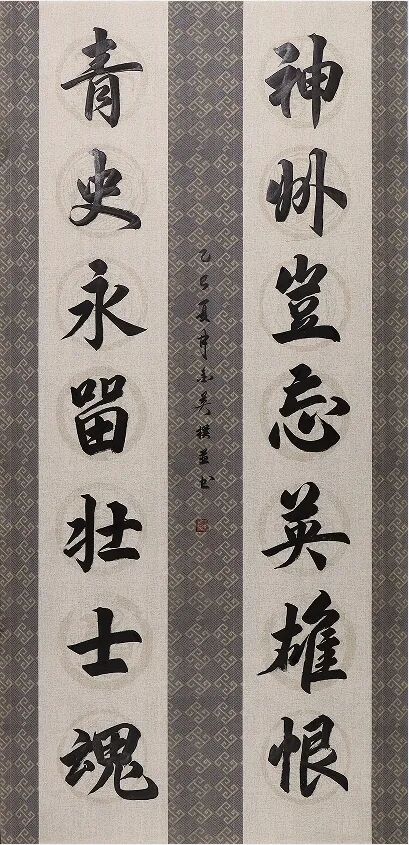 神州豈忘英雄恨
青史永留壮士魂
乙巳夏 撰並书